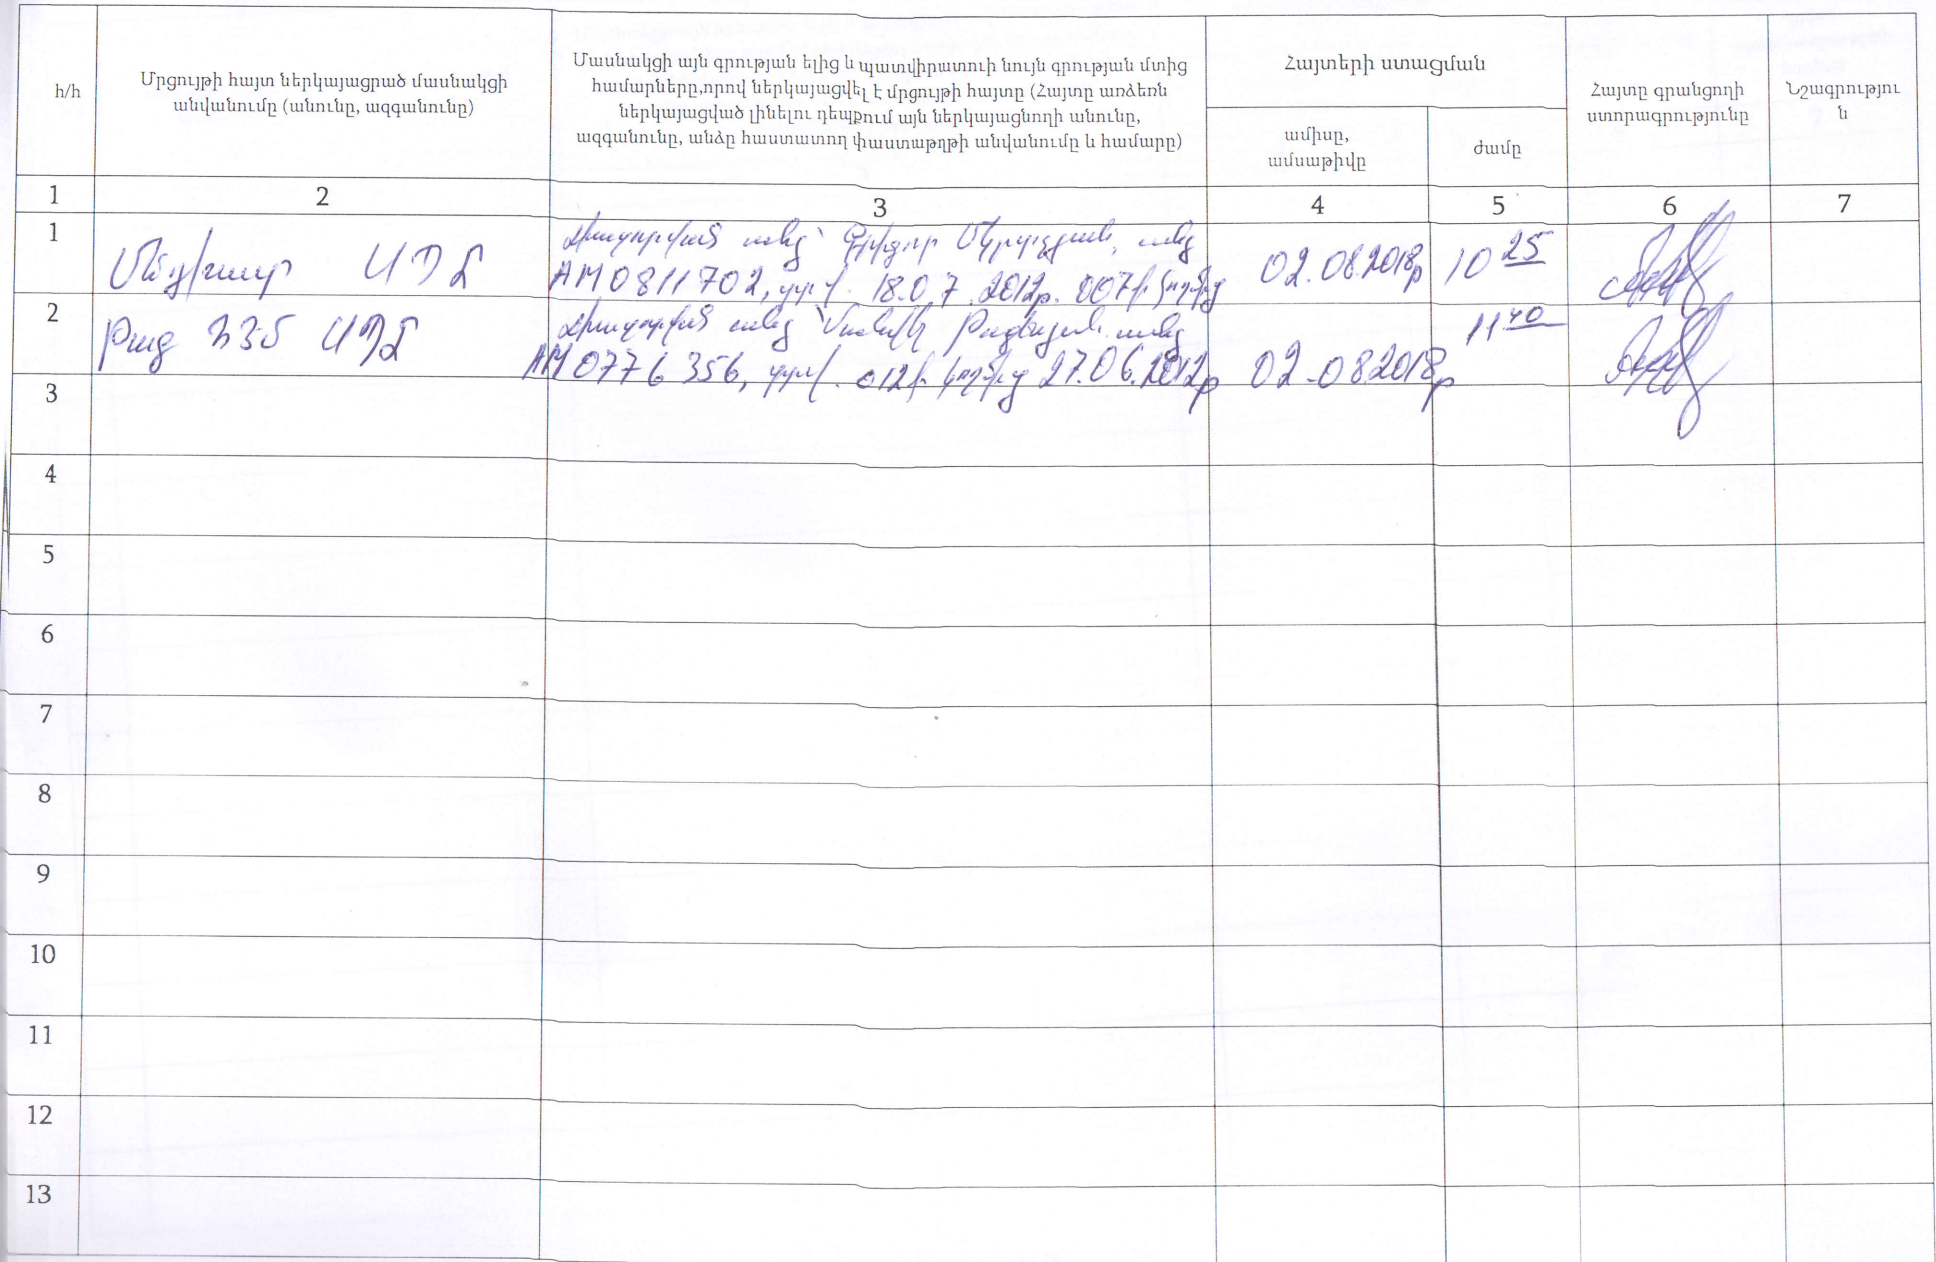 հ/հ
Մրցույթի հայտ ներկայացրած մասնակցի
անվանումը (անունը, ազգանունը)
Մասնակցի այն գրության ելից և պատվիրատուի նույն գրության մտից
համարները,որով ներկայացվել է մրցույթի հայտը (Հայտը առձեռն
ներկայացված լինելու դեպքում այն ներկայացնողի անունը,
ազգանունը, անձը հաստատող փաստաթղթի անվանումը և համարը)
Հայտերի ստացման
ամիսը,
ամսաթիվը
ժամը
Հայտը գրանցողի
ստորագրությունը
Նշագրությու
ն
1 2 3 4 5 6 7
1
ՍՊԸ
լիազորված անձ՝ Գրիգոր Մկրտչյան, անձ
AM0811702, տրվ. 18.07.2012թ. 007-ի կողմից
02.08.2018թ
10 25
2
Թագ ՍՊԸ
լիազորված անձ՝ անձ
AM0776356, տրվ. 012-ի կողմից 27.06.2012թ
02.08 2018թ
11 40
3
4
5
6
7
8
9
10
11
12
13